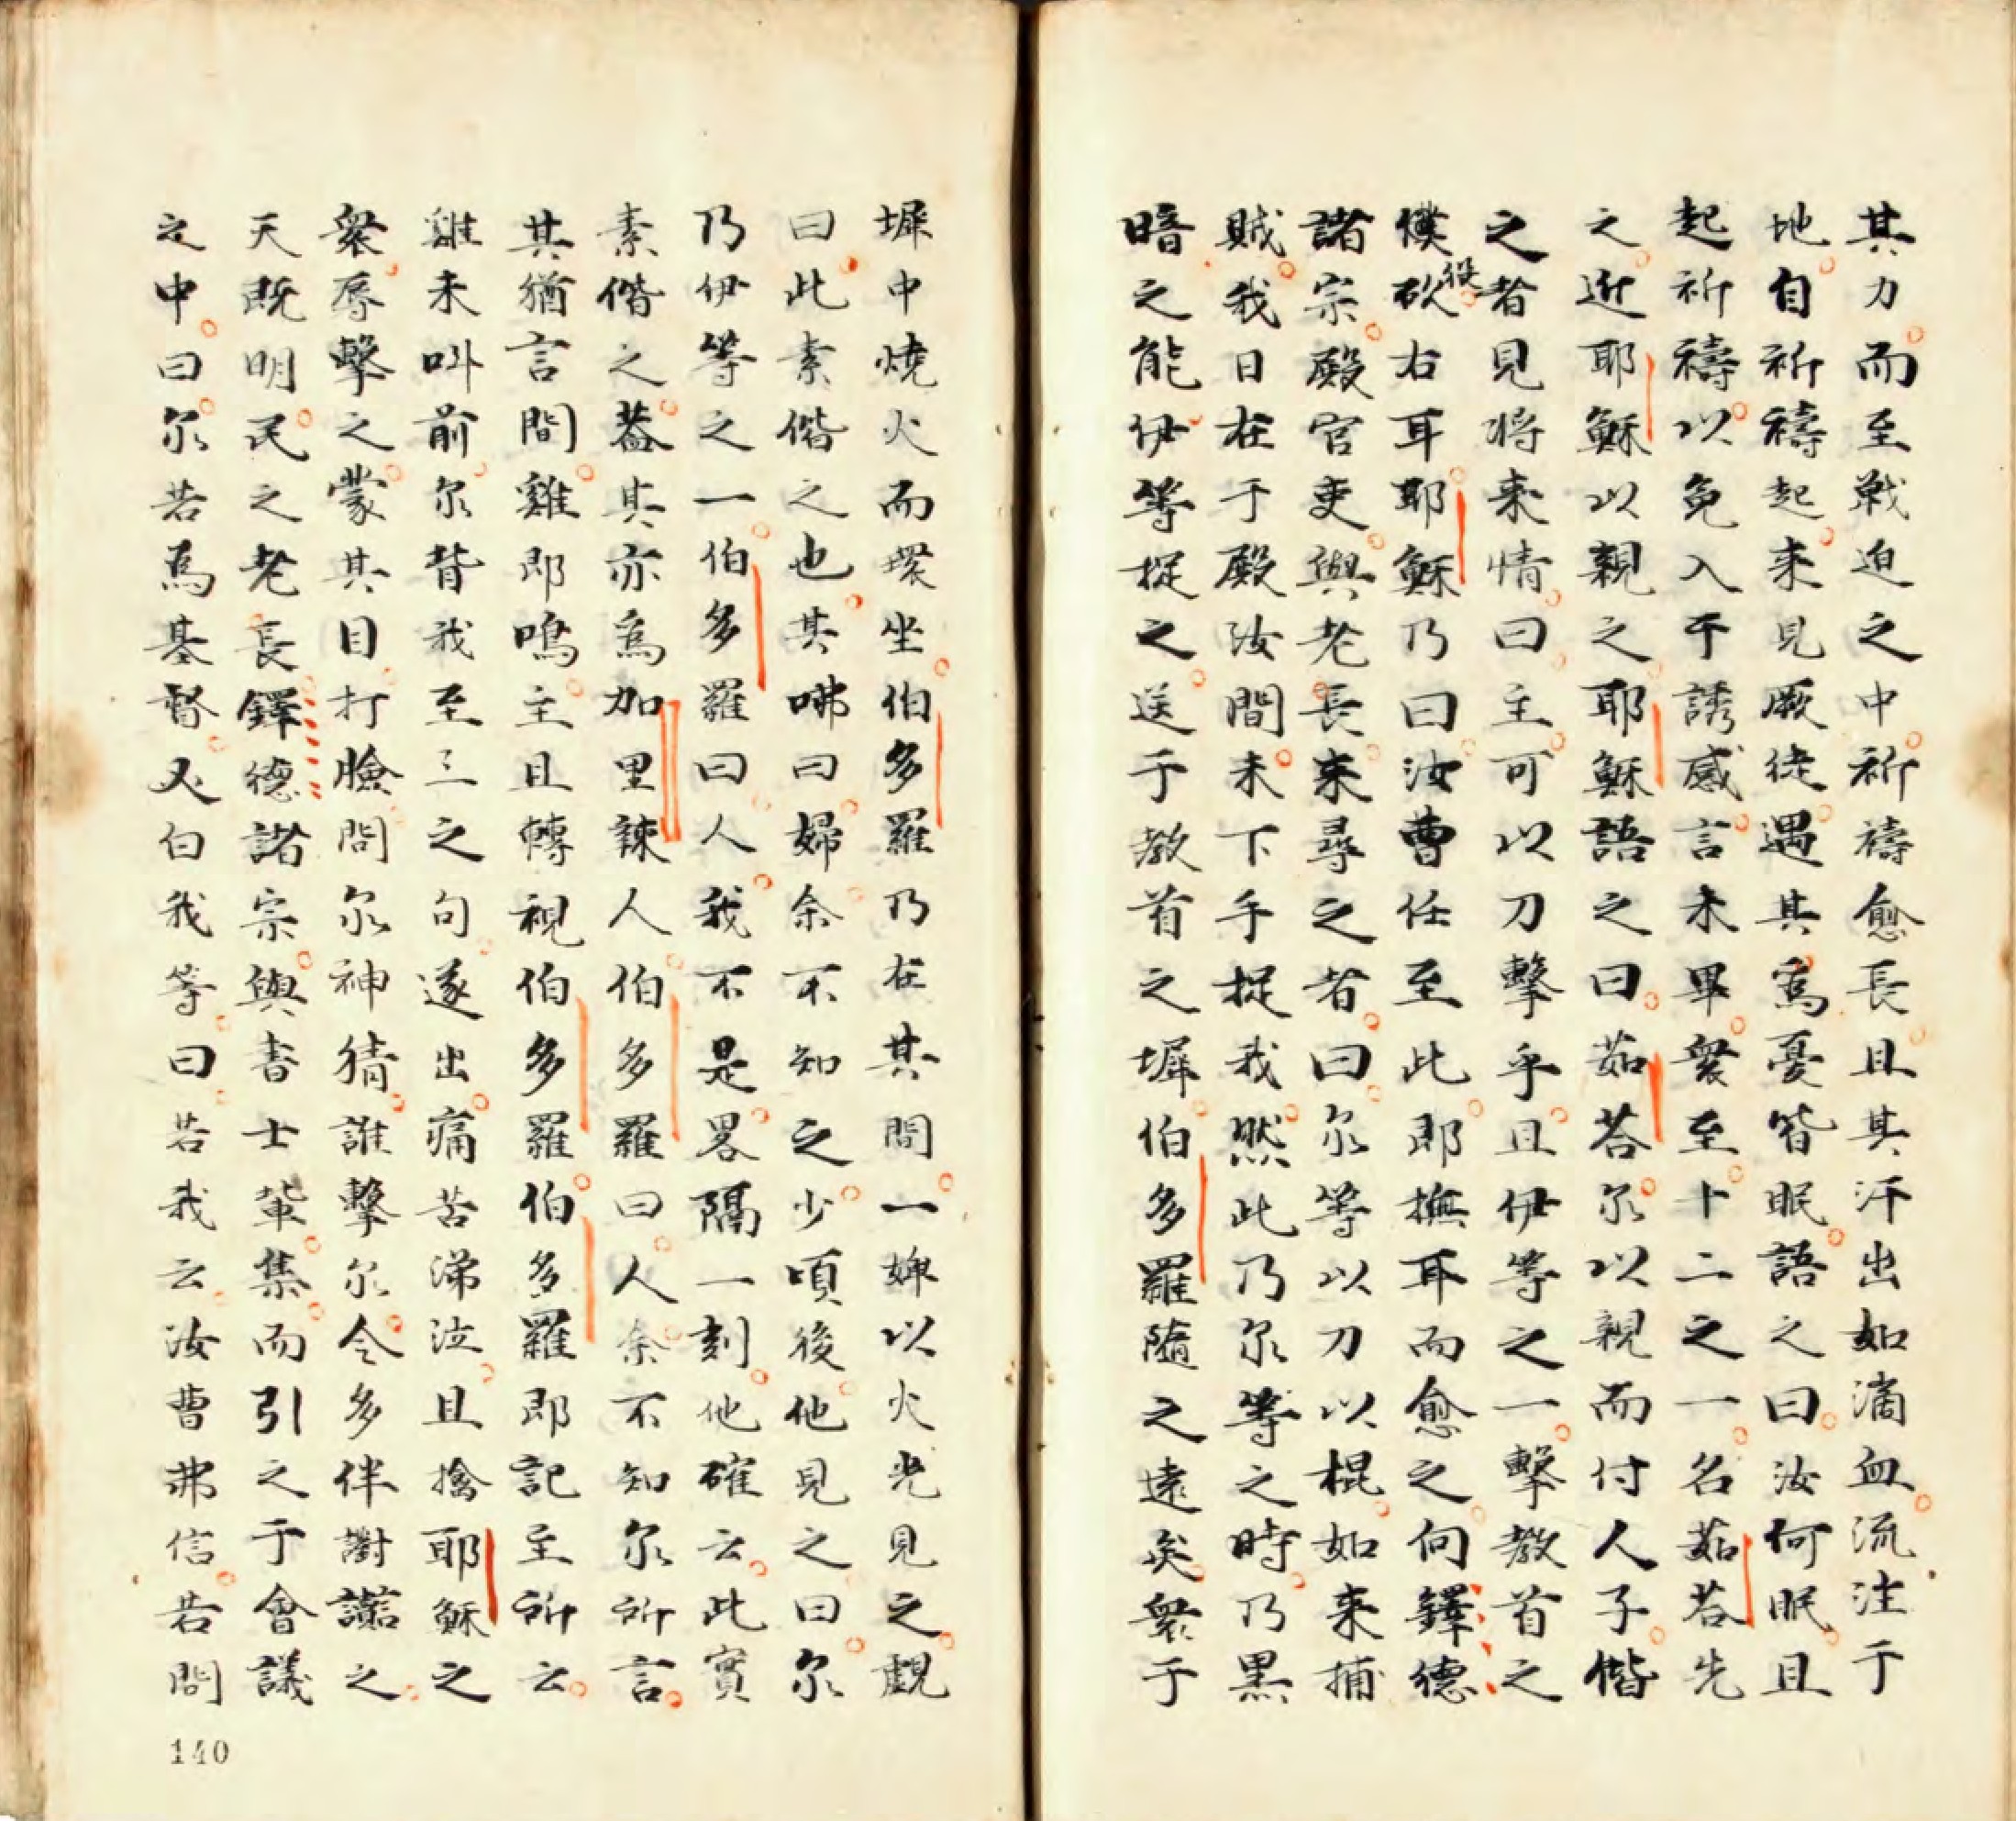 其力而至戰迫之中祈禱愈長且其汗出如滴血流注于
地自祈禱起来見厥徒遇其為憂皆眠語之曰汝何眠且
起祈禱以免入于誘感言未畢衆至十二之一名茹荅先
之近耶穌以親之耶穌語之曰茹荅尔以親而付人子偕
之者見将来情曰主可以刀擊乎且伊等之一擊教首之
僕砍右耳耶穌乃曰汝曹任至此即撫耳而愈之向鐸德
役
諸宗殿官吏與老長来尋之者曰尔等以刀以棍如来捕
賊我日在于殿汝間未下手捉我然此乃尔等之時乃黑
暗之能伊等捉之送于教首之墀伯多羅隨之遠矣衆于
墀中燒火而環坐伯多羅乃在其間一婢以火光見之覰
曰此素偕之也其咈曰婦余不知之少頃後他見之曰尔
乃伊等之一伯多羅曰人我不是畧隔一刻他確云此實
素偕之葢其亦為加里辣人伯多羅曰人余不知尔所言
其猶言間雞即鳴主且轉視伯多羅伯多羅即記主所云
雞未叫前尔背我至三之句遂出痛苦涕泣且擒耶穌之
衆辱擊之蒙其目打臉問尔神猜誰擊尔令多伴謝讟之
天既明民之老長鐸德諸宗與書士輩集而引之于會議
之中曰尔若為基督又白我等曰若我云汝曹弗信若問
140